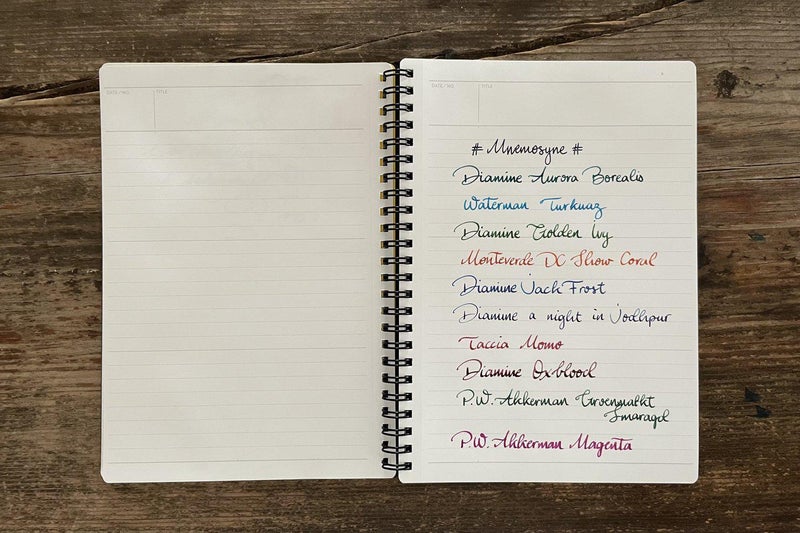 DATE / NO.
TITLE
DATE / NO.
TITLE
# Mnemosyne #
Diamine Aurora Borealis
Waterman Turkuaz
Diamine Golden Ivy
Monteverde DC Show Coral
Diamine Jack Frost
Diamine a night in Jodhpur
Taccia Momo
Diamine Oxblood
P.W. Akkerman Groenmarkt
Smaragd
P.W. Akkerman Magenta